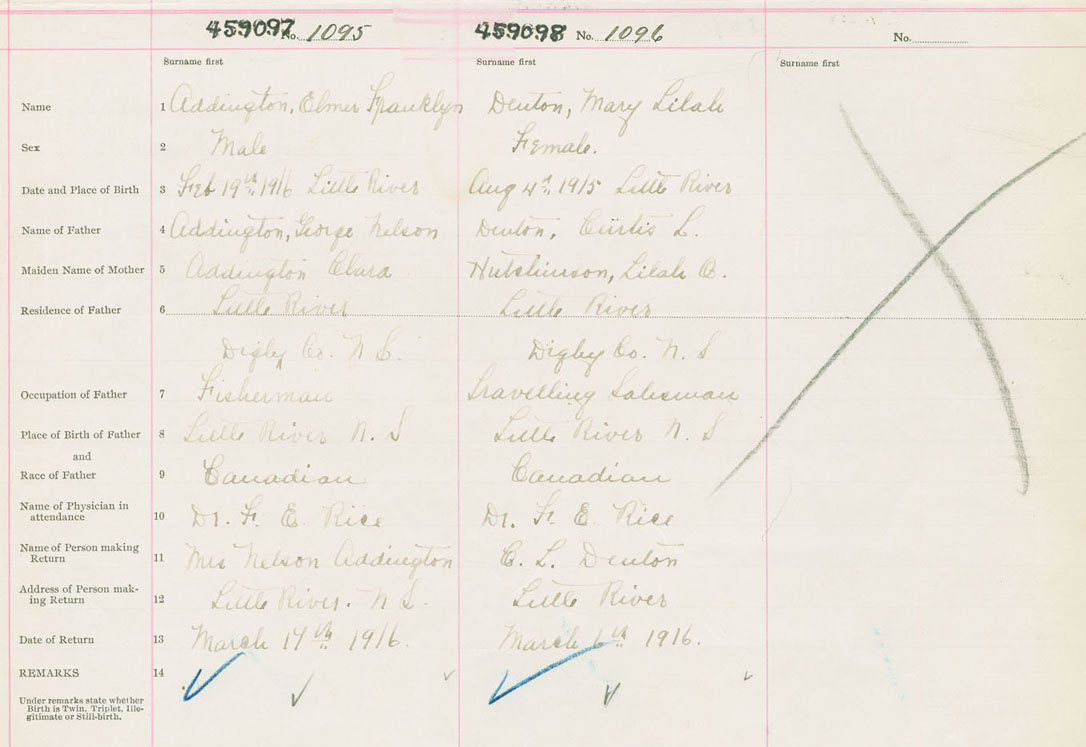 459097 No. 1095 459098 No. 1096 No.
Surname first Surname first Surname first
Name 1 Addington, Elmer Franklyn Denton, Mary Lilah
Sex 2 Male Female.
Date and Place of Birth 3 Feb 19th 1916 Little River Aug 4th 1915 Little River
Name of Father 4 Addington, George Nelson Denton, Curtis L.
Maiden Name of Mother 5 Addington Clara Hutchinson, Lilah B.
Residence of Father 6 Little River Little River
Digby Co. N S. Digby Co. N. S
Occupation of Father 7 Fisherman Travelling Salesman
Place of Birth of Father 8 Little River N. S Little River N. S
and
Race of Father 9 Canadian Canadian
Name of Physician in
attendance 10 Dr. F. E. Rice Dr. F. E. Rice
Name of Person making
Return 11 Mrs Nelson Addington C. L. Denton
Address of Person mak-
ing Return 12 Little River. N S. Little River
Date of Return 13 March 14th 1916. March 6th 1916.
REMARKS 14
Under remarks state whether
Birth is Twin, Triplet, Ille-
gitimate or Still-birth.